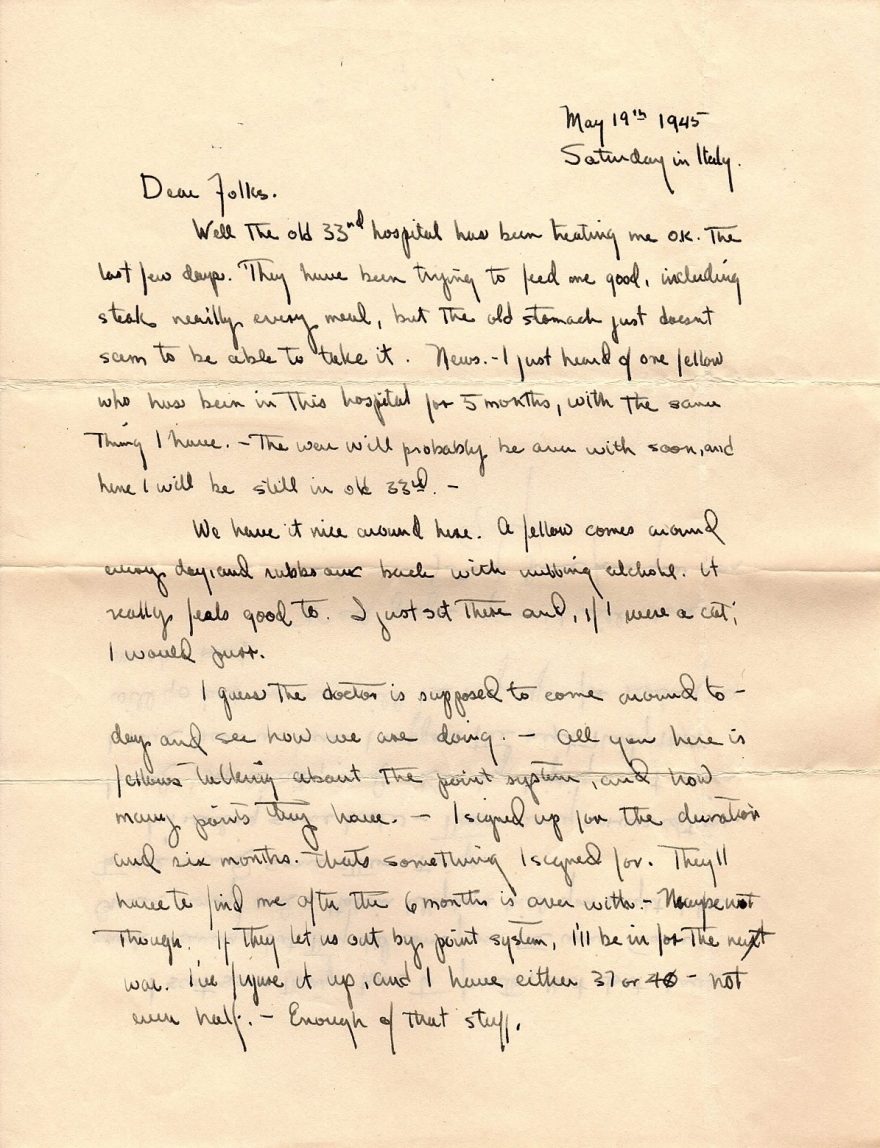 May 19th 1945
Saturday in Italy.
Dear Folks.
Well the old 33nd hospital has been treating me o.k. The
last few days. They have been trying to feed me good, including
steak neailly every meal, but the old stomach just doesnt
seem to be able to take it. News.- I just heard of one fellow
who has been in this hospital for 5 months, with the same
Thing I have. - The war will probably be over with soon, and
here I will be still in old 33rd. -
We have it nice around here. A fellow comes around
every day, and rubbs our back with rubbing alchohl. it
really feels good to. I just set there and, if I were a cat,
I would purr.
I guess the doctor is supposed to come around to -
day and see how we are doing. - All you here is
fellows talking about the point system, and how
many points they have. - I signed up for the duration
and six months. Thats something I signed for. They'll
have to find me after the 6 months is over with. - Maybe not
Though. If they let us out by point system, I'll be in for the next
war. I've figure it up, and I have either 37 or 40 - not
even half. - Enough of that stuff.